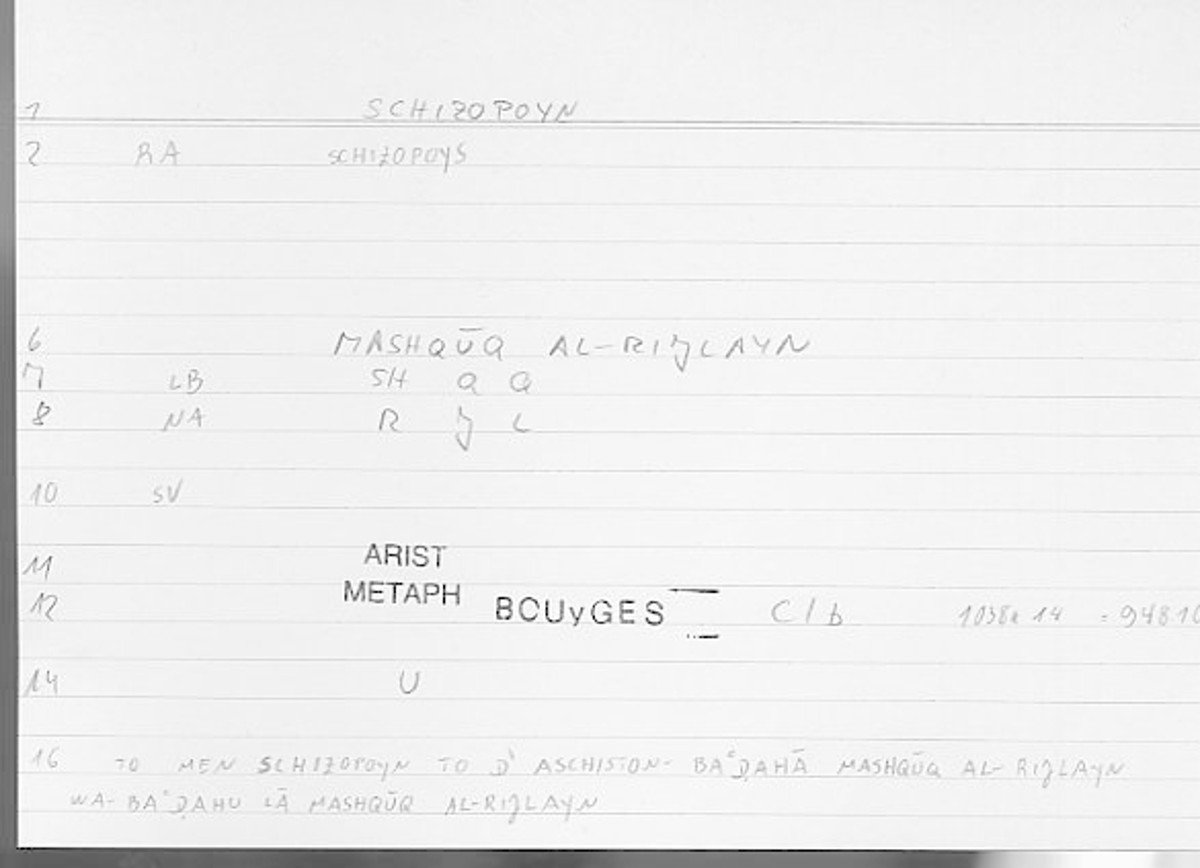 1 SCHIZOPOYN
2 RA SCHIZOPOYS
6 MASHQŪQ AL-RIJLAYN
7 LB SH Q Q
8 NA R J L
10 SV
11 ARIST
12 METAPH BOUyGES C/b 1038a 14 = 948.10
14 U
16 TO MEN SCHIZOPOYN TO D' ASCHISTON - BAʿḌAHĀ MASHQŪQ AL-RIJLAYN
WA-BAʿḌAHU LĀ MASHQŪQ AL-RIJLAYN